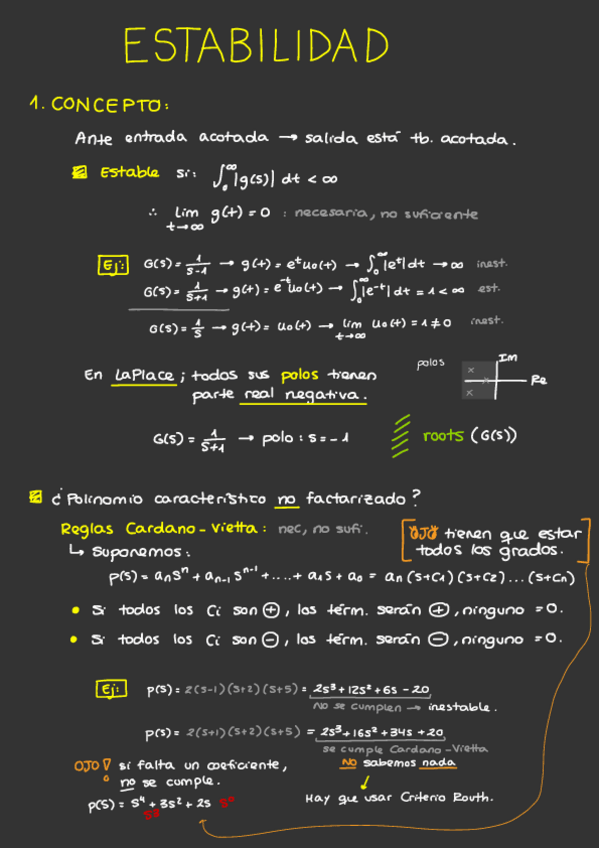 ESTABILIDAD
1. CONCEPTO:
Ante entrada acotada → salida está tb. acotada.
Estable si: ∫₀^∞ |g(s)| dt < ∞
∴ lim t→∞ g(t) = 0 : necesaria, no suficiente
Ej: G(s) = 1/(s-1) → g(t) = e^t u₀(t) → ∫₀^∞ |e^t| dt → ∞ inest.
G(s) = 1/(s+1) → g(t) = e^-t u₀(t) → ∫₀^∞ |e^-t| dt = 1 < ∞ est.
G(s) = 1/s → g(t) = u₀(t) → lim t→∞ u₀(t) = 1 ≠ 0 inest.
En LaPlace ; todos sus polos tienen
parte real negativa.
polos
Im
Re
G(s) = 1/(s+1) → polo : s = -1
roots (G(s))
¿Polinomio característico no factorizado?
Reglas Cardano-Vietta: nec, no sufi.
OJO tienen que estar
todos los grados.
↳ Suponemos:
p(s) = aₙsⁿ + aₙ₋₁ sⁿ⁻¹ + .... + a₁s + a₀ = aₙ (s+c₁) (s+c₂) ... (s+cₙ)
• Si todos los Ci son ⊕, los térm. serán ⊕, ninguno = 0.
• Si todos los Ci son ⊖, los térm. serán ⊖, ninguno = 0.
Ej: p(s) = 2(s-1)(s+2)(s+5) = 2s³ + 12s² + 6s - 20
No se cumplen → inestable.
p(s) = 2(s+1)(s+2)(s+5) = 2s³ + 16s² + 34s + 20
se cumple Cardano-Vietta
NO sabemos nada
Hay que usar Criterio Routh.
OJO! si falta un coeficiente,
no se cumple.
p(s) = s⁴ + 3s² + 2s s⁰
s³